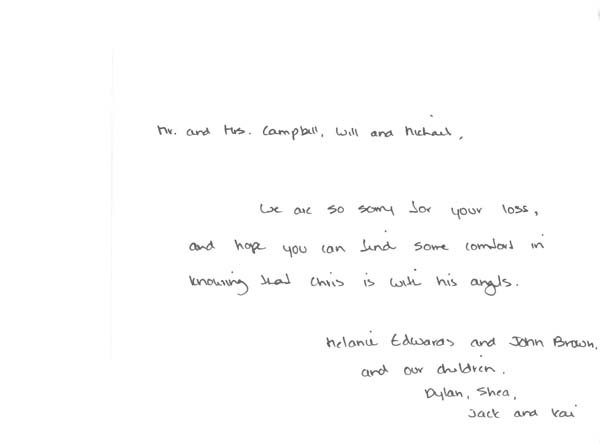 Mr. and Mrs. Campbell, Will and Michael,
We are so sorry for your loss,
and hope you can find some comfort in
knowing that Chris is with his angels.
Melanie Edwards and John Brown,
and our children.
Dylan, Shea,
Jack and Kai